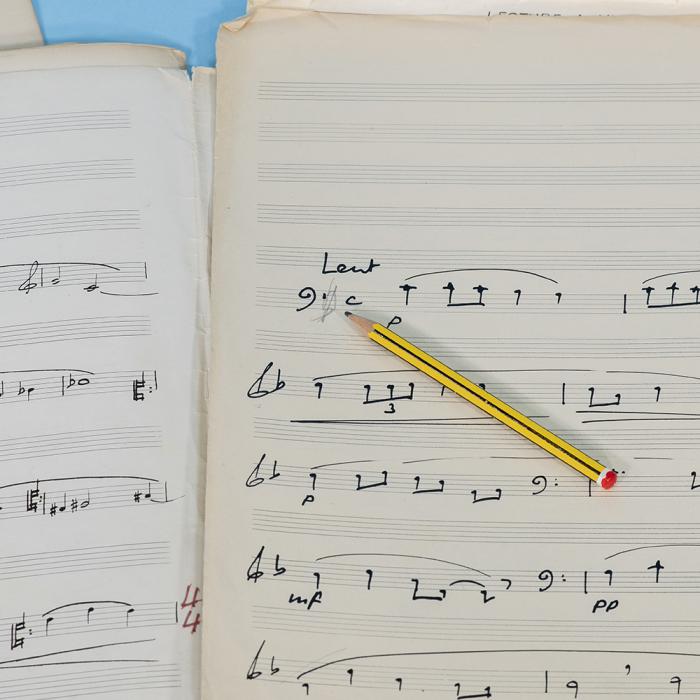 Lent
C
p
3
p
mf
pp
4
4